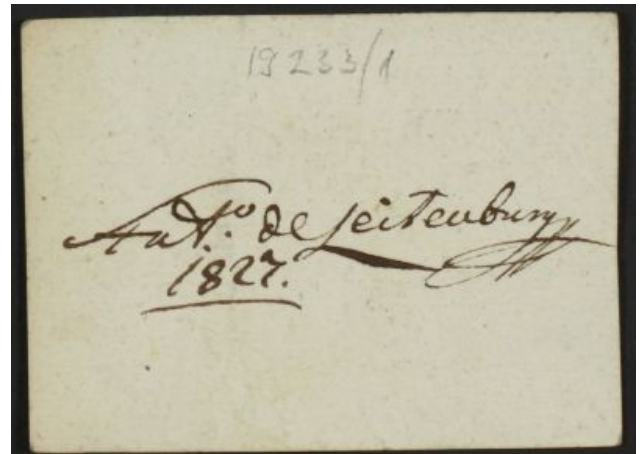 19233/1
Ant.o de Leitenburg
1827.